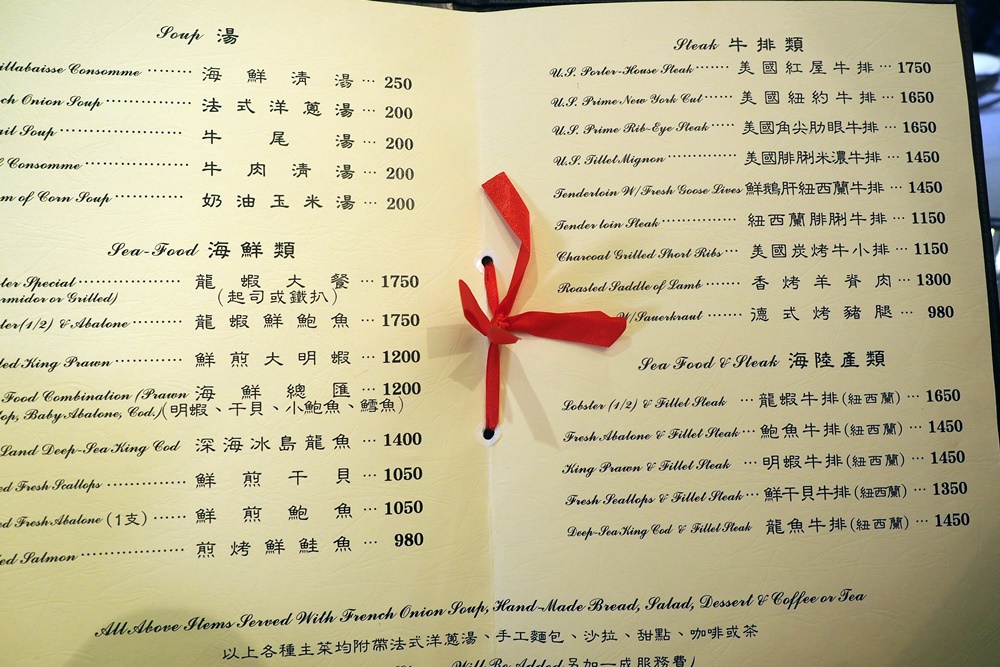 Soup 湯
Consomme ········ 海鮮清湯 ··· 250
Onion Soup ·············· 法式洋蔥湯 ··· 200
Soup ···················· 牛尾湯 ··· 200
Consomme ················ 牛肉清湯 ··· 200
of Corn Soup ············ 奶油玉米湯 ··· 200
Sea-Food 海鮮類
Special ················· 龍蝦大餐 ··· 1750
or Grilled) （起司或鐵扒）
(1/2) & Abalone ········· 龍蝦鮮鮑魚 ··· 1750
King Prawn ·············· 鮮煎大明蝦 ··· 1200
Food Combination (Prawn 海鮮總匯 ··· 1200
Baby Abalone, Cod.) (明蝦、干貝、小鮑魚、鱈魚)
Land Deep-Sea King Cod 深海冰島龍魚 ··· 1400
Fresh Scallops ·········· 鮮煎干貝 ··· 1050
Fresh Abalone (1支) ······ 鮮煎鮑魚 ··· 1050
Salmon ·················· 煎烤鮮鮭魚 ··· 980
Steak 牛排類
U.S. Porter-House Steak ····· 美國紅屋牛排 ··· 1750
U.S. Prime New York Cut ······ 美國紐約牛排 ··· 1650
U.S. Prime Rib-Eye Steak ····· 美國角尖肋眼牛排 ··· 1650
U.S. Fillet Mignon ·············· 美國腓脷米濃牛排 ··· 1450
Tenderloin W/Fresh Goose Lives 鮮鵝肝紐西蘭牛排 ··· 1450
Tender loin Steak ················ 紐西蘭腓脷牛排 ··· 1150
Charcoal Grilled Short Ribs ··· 美國炭烤牛小排 ··· 1150
Roasted Saddle of Lamb ······· 香烤羊脊肉 ··· 1300
W/Sauerkraut ······ 德式烤豬腿 ··· 980
Sea Food & Steak 海陸產類
Lobster (1/2) & Fillet Steak ··· 龍蝦牛排(紐西蘭) ··· 1650
Fresh Abalone & Fillet Steak ··· 鮑魚牛排(紐西蘭) ··· 1450
King Prawn & Fillet Steak ··· 明蝦牛排(紐西蘭) ··· 1450
Fresh Scallops & Fillet Steak ··· 鮮干貝牛排(紐西蘭) ··· 1350
Deep-Sea King Cod & Fillet Steak 龍魚牛排(紐西蘭) ··· 1450
All Above Items Served With French Onion Soup, Hand-Made Bread, Salad, Dessert & Coffee or Tea
以上各種主菜均附帶法式洋蔥湯、手工麵包、沙拉、甜點、咖啡或茶
Will Be Added 另加一成服務費)